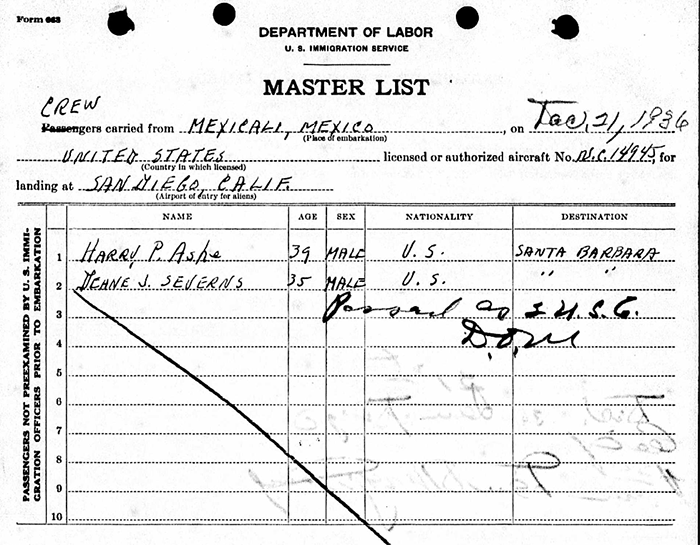 Form 663
DEPARTMENT OF LABOR
U. S. IMMIGRATION SERVICE
MASTER LIST
CREW
Passengers carried from MEXICALI, MEXICO, on Dec, 21, 1936
(Place of embarkation)
UNITED STATES licensed or authorized aircraft No. N.C. 14945, for
(Country in which licensed)
landing at SAN DIEGO, CALIF.
(Airport of entry for aliens)
PASSENGERS NOT PREEXAMINED BY U. S. IMMI-
GRATION OFFICERS PRIOR TO EMBARKATION
NAME AGE SEX NATIONALITY DESTINATION
1 HARRY P. Ashe 39 MALE U. S. SANTA BARBARA
2 DEANE J. SEVERNS 35 MALE U. S. " "
3 Passed as 2 U.S.C.
4 D.O.M
5
6
7
8
9
10